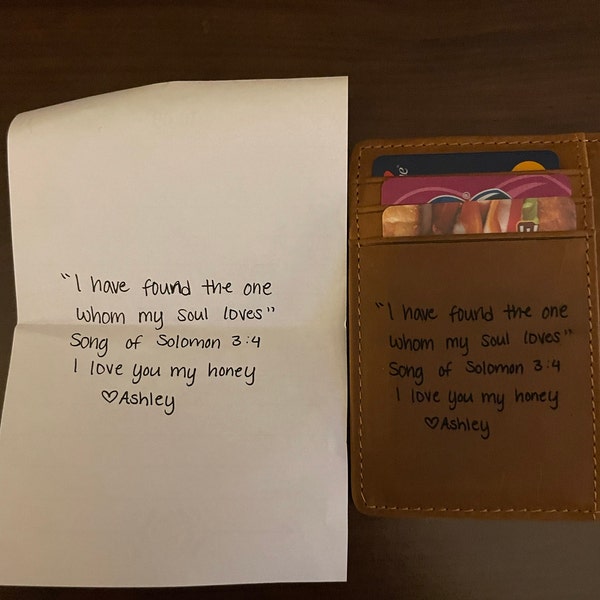 "I have found the one
whom my soul loves"
Song of Solomon 3:4
I love you my honey
♡Ashley
"I have found the one
whom my soul loves"
Song of Solomon 3:4
I love you my honey
♡Ashley